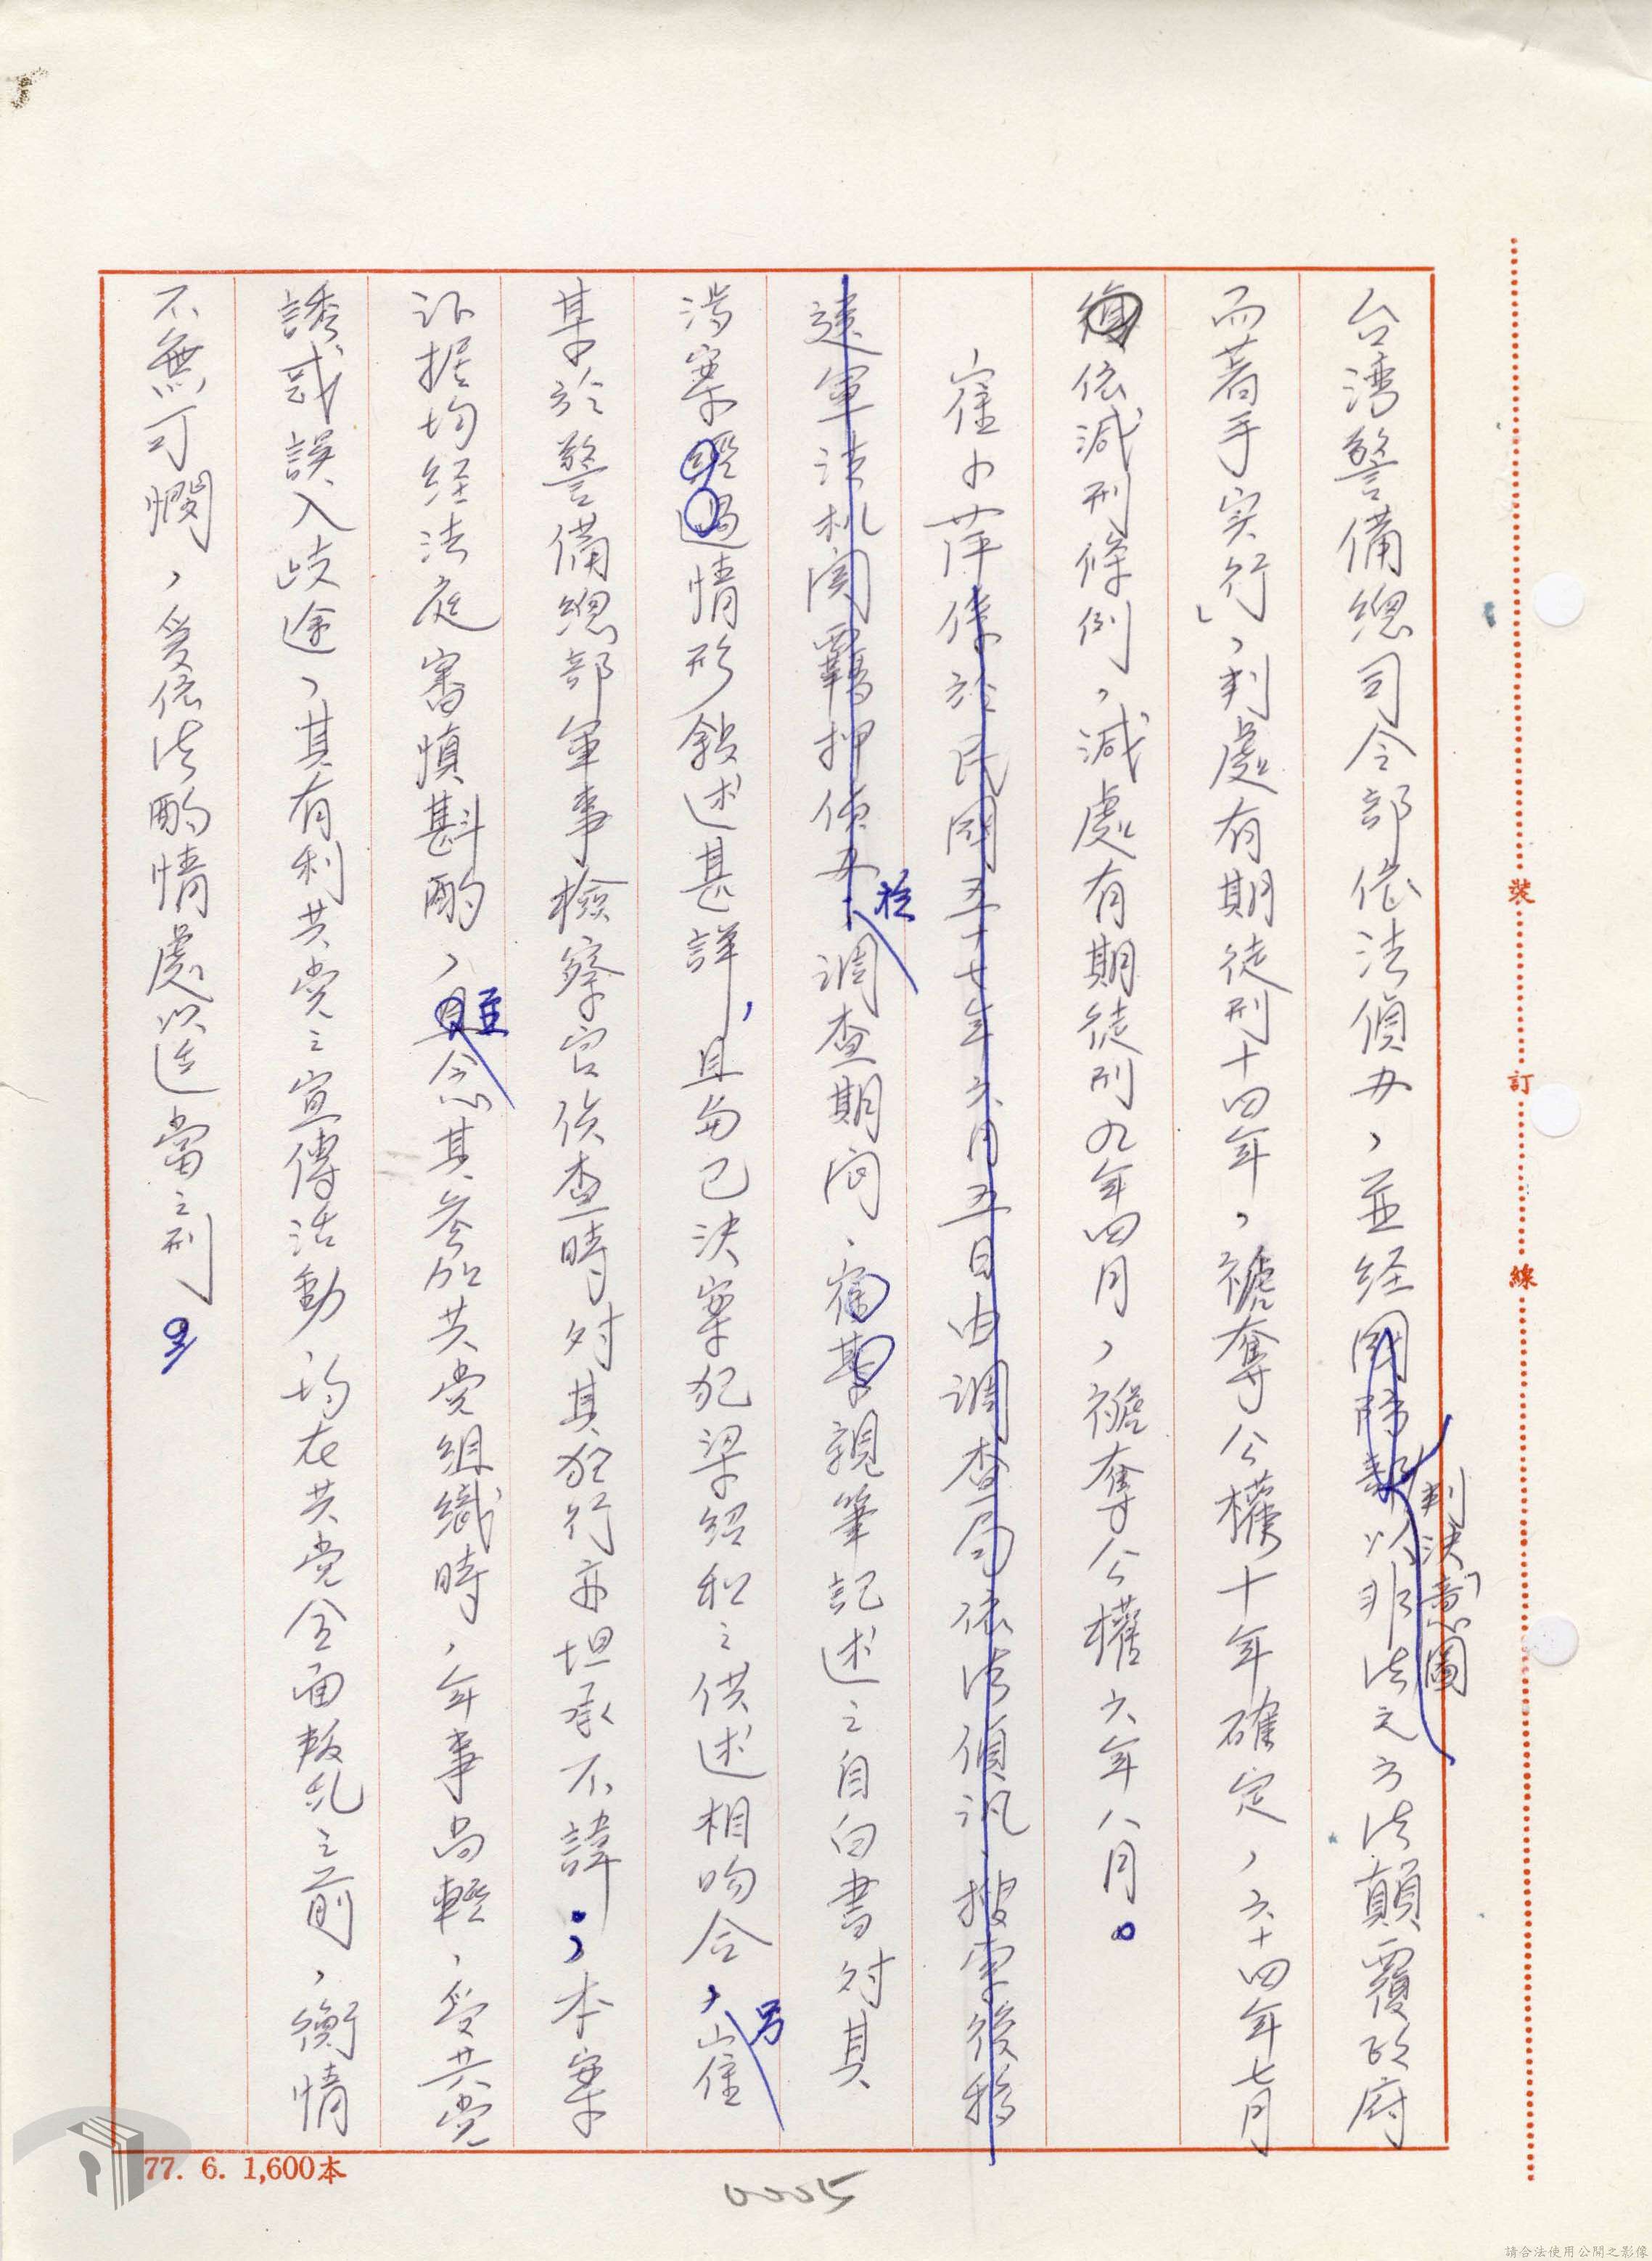 台湾警備總司令部依法偵办,並経國防部以非法之方法顛覆政府
判決「意圖
而著手实行」,判處有期徒刑十四年,褫奪公權十年確定,六十四年七月
復依減刑條例,減處有期徒刑九年四月,褫奪公權六年八月。
崔小萍係於民國五十七年六月五日由調查局依法偵訊、搜索後移
送軍法机関羈押偵办,調查期间、崔某親筆記述之自白書对其
於
涉案經過情形敘述甚詳,且与已決案犯梁紹和之供述相吻合,崔
另
某於警備總部軍事檢察官偵查時对其犯行亦坦承不諱;本案
证据均经法庭審慎斟酌,且念其参加共党組織時,年事尚輕,受共党
並
誘惑誤入歧途,其有利共党之宣傳活動,均在共党全面叛乱之前,衡情
不無可憫,爰依法酌情處以適當之刑。
裝
訂
線
77. 6. 1,600本
0005
請合法使用公開之影像